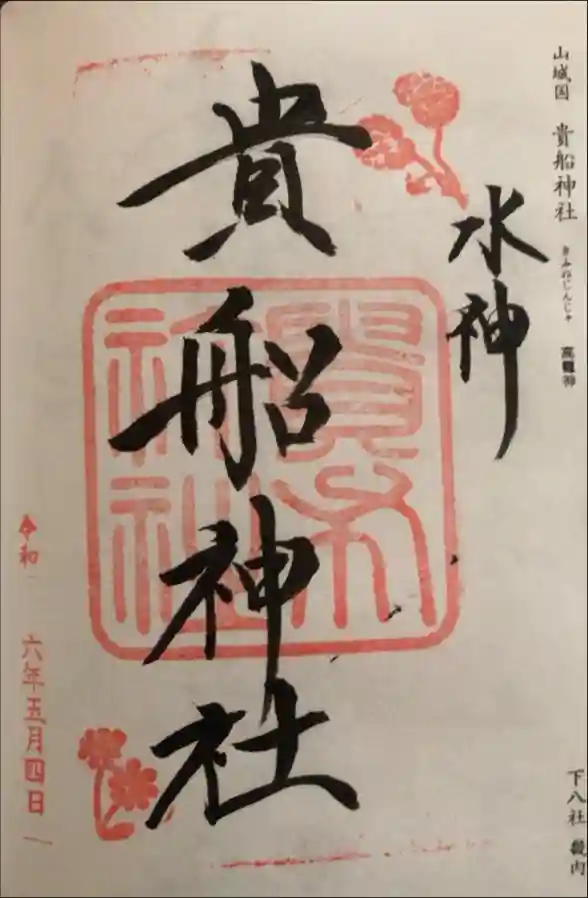 山城国 貴船神社 きふねじんじゃ 高龗神
下八社 畿内
水神
貴船神社
令和 六年五月四日